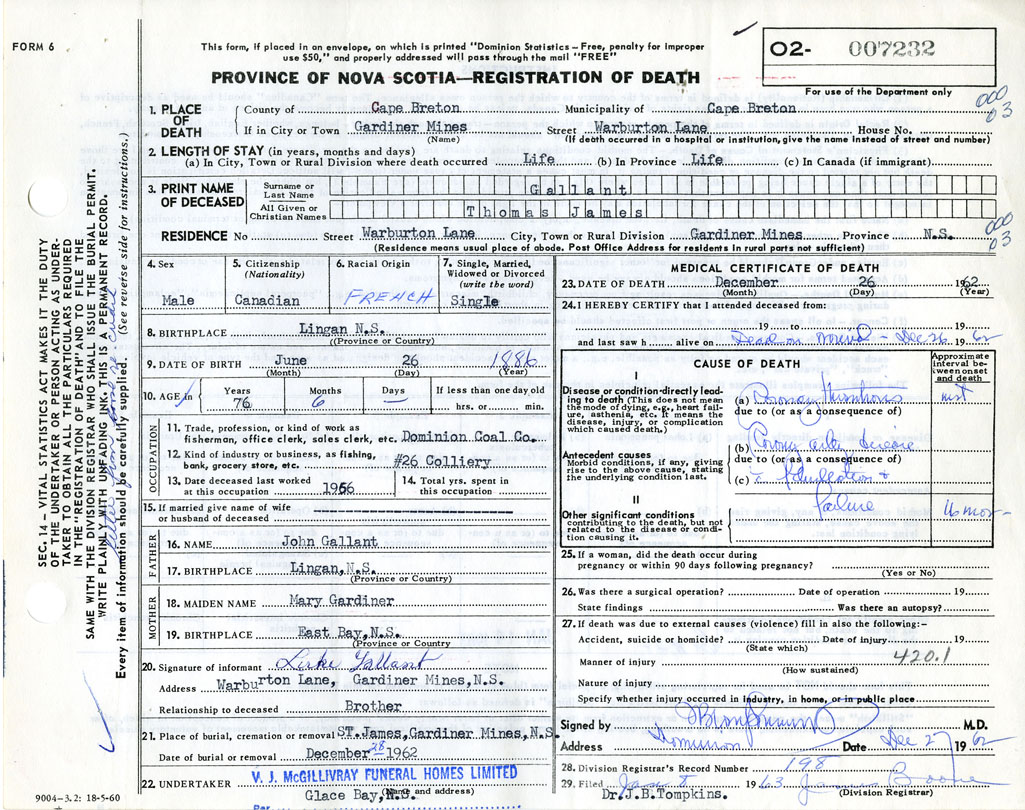 FORM 6
This form, if placed in an envelope, on which is printed "Dominion Statistics – Free, penalty for improper
use $50," and properly addressed will pass through the mail "FREE"
PROVINCE OF NOVA SCOTIA—REGISTRATION OF DEATH
O2- 007232
For use of the Department only
000
03
1. PLACE OF DEATH
County of Cape Breton Municipality of Cape Breton
If in City or Town Gardiner Mines Street Warburton Lane House No.
(Name) (If death occurred in a hospital or institution, give the name instead of street and number)
2. LENGTH OF STAY (in years, months and days)
(a) In City, Town or Rural Division where death occurred Life (b) In Province Life (c) In Canada (if immigrant)
3. PRINT NAME OF DECEASED
Surname or Last Name Gallant
All Given or Christian Names Thomas James
000
03
RESIDENCE No Street Warburton Lane City, Town or Rural Division Gardiner Mines Province N.S.
(Residence means usual place of abode. Post Office Address for residents in rural parts not sufficient)
4. Sex
Male
5. Citizenship
(Nationality)
Canadian
6. Racial Origin
FRENCH
7. Single, Married,
Widowed or Divorced
(write the word)
Single
8. BIRTHPLACE Lingan N.S.
((Province or Country)
9. DATE OF BIRTH June 26 1886
(Month) (Day) (Year)
10. AGE in
Years Months Days If less than one day old
76 6 — hrs. or min.
OCCUPATION
11. Trade, profession, or kind of work as
fisherman, office clerk, sales clerk, etc. Dominion Coal Co.
12. Kind of industry or business, as fishing,
bank, grocery store, etc. #26 Colliery
13. Date deceased last worked
at this occupation 1956
14. Total yrs. spent in
this occupation
15. If married give name of wife
or husband of deceased
FATHER
16. NAME John Gallant
17. BIRTHPLACE Lingan,N.S.
(Province or Country)
MOTHER
18. MAIDEN NAME Mary Gardiner
19. BIRTHPLACE East Bay,N.S.
(Province or Country
20. Signature of informant Luke Gallant
Address Warburton Lane, Gardiner Mines,N.S.
Relationship to deceased Brother
21. Place of burial, cremation or removal ST.James,Gardiner Mines,N.S.
Date of burial or removal December 28 1962
22. UNDERTAKER V. J. McGILLIVRAY FUNERAL HOMES LIMITED
(Name and address)
Glace Bay,N.S.
Par
9004–3.2: 18-5-60
MEDICAL CERTIFICATE OF DEATH
23. DATE OF DEATH December 26 1962
(Month) (Day) (Year)
24. I HEREBY CERTIFY that I attended deceased from:
19 to 19
and last saw h alive on Dead on arrival – Dec 26 1962
CAUSE OF DEATH
Approximate
interval be-
tween onset
and death
I
Disease or condition directly lead-
ing to death (This does not mean
the mode of dying, e.g., heart fail-
ure, asthenia, etc. It means the
disease, injury, or complication
which caused death.)
(a) Coronary Thrombosis inst
due to (or as a consequence of)
Antecedent causes
Morbid conditions, if any, giving
rise to the above cause, stating
the underlying condition last.
(b) disease
due to (or as a consequence of)
(c) Fibrillation +
failure 16 mos –
II
Other significant conditions
contributing to the death, but not
related to the disease or condi-
tion causing it.
25. If a woman, did the death occur during
pregnancy or within 90 days following pregnancy?
(Yes or No)
26. Was there a surgical operation? Date of operation 19
State findings Was there an autopsy?
27. If death was due to external causes (violence) fill in also the following:–
Accident, suicide or homicide? Date of injury 19
(State which)
420.1
Manner of injury
(How sustained)
Nature of injury
Specify whether injury occurred in industry, in home, or in public place
Signed by M.D.
Address Dominion Date Dec 27 1962
28. Division Registrar's Record Number 198
29. Filed 1963 Boone
(Division Registrar)
Dr.J.B.Tompkins.
SEC. 14 – VITAL STATISTICS ACT MAKES IT THE DUTY
OF THE UNDERTAKER OR PERSON ACTING AS UNDER-
TAKER TO OBTAIN ALL THE PARTICULARS REQUIRED
IN THE "REGISTRATION OF DEATH" AND TO FILE THE
SAME WITH THE DIVISION REGISTRAR WHO SHALL ISSUE THE BURIAL PERMIT.
WRITE PLAINLY WITH UNFADING INK. THIS IS A PERMANENT RECORD.
Every item of information should be carefully supplied. (See reverse side for instructions.)